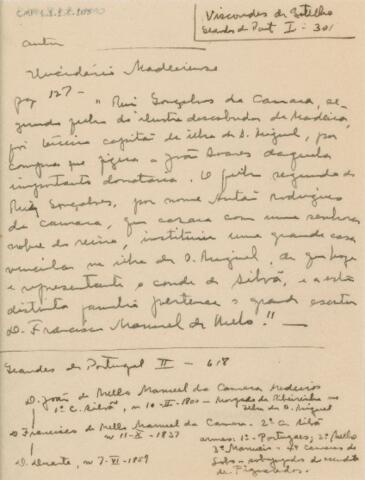 Viscondes de Botelho
Grandes de Port I - 301
autor
Elucidário Madeirense
pag 127 - "Rui Gonçalves da Camara, se-
gundo filho do ilustre descobridor da Madeira,
foi terceiro capitão da ilha de S. Miguel, por
compra que fizera a João Soares daquela
importante donataria. O filho segundo de
Rui Gonçalves, por nome Antão Rodrigues
da Camara, que casara com uma senhora
nobre do reino, instituiu uma grande casa
vincular na ilha de S. Miguel, de que hoje
é representante o conde de Silvã, e a esta
distinta familia pertence o grande escritor
D. Francisco Manuel de Mello." —
Grandes de Portugal II - 618
D. João de Mello Manuel da Camara Medeiros
1º C. Silvã, n 10-II-1800 - Morgado da Ribeirinha na
Ilha de S. Miguel
D Francisco de Mello Manuel da Camara - 2º C. Silvã
n 11-X-1837
armas: 1º Portugal; 2º Mello
3º Manuais - 4º Camaras de
Lobo - sobrepujado do escudete
de Figueiredos.
D. Duarte, n 7-VI-1859